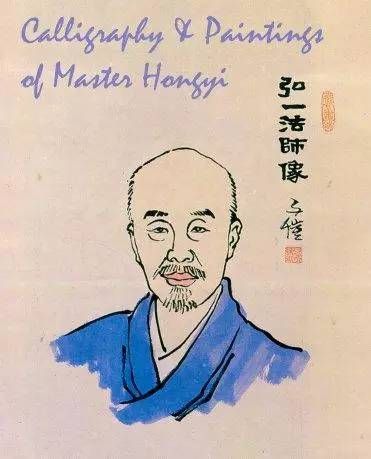 Calligraphy & Paintings
of Master Hongyi
弘一法師像
子愷